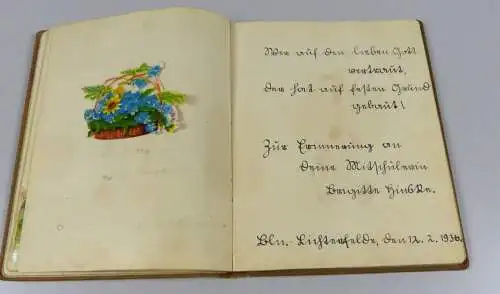 Wer auf den lieben Gott
vertraut,
der hat auf festen Grund
gebaut!
Zur Erinnerung an
deine Mitschülerin
Brigitte Hinske.
Bln.-Lichterfelde, den 12. 2. 1936.